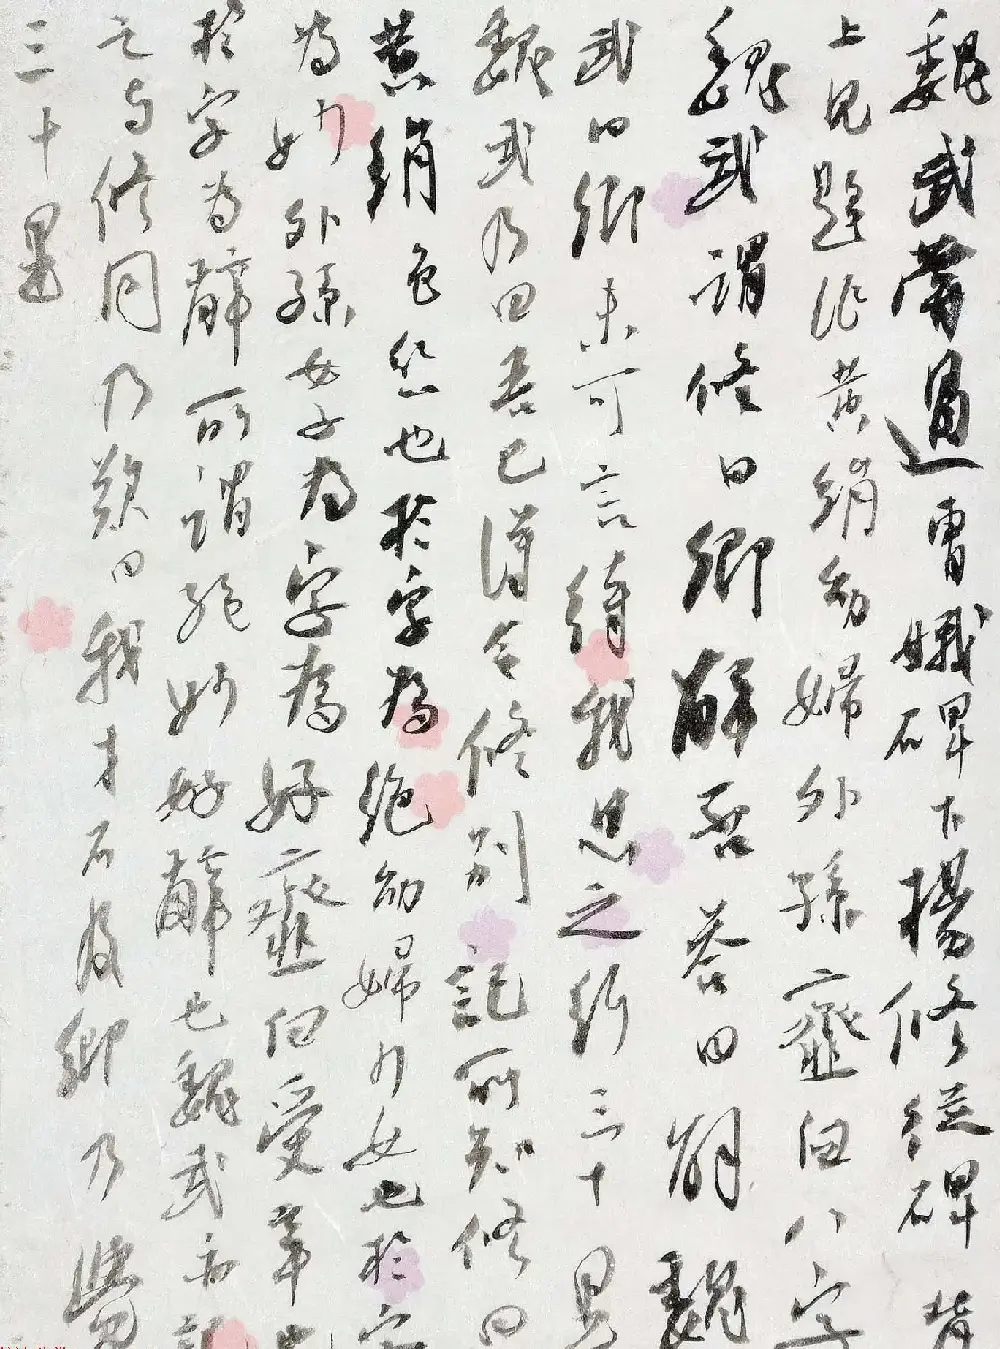 魏武嘗過曹娥碑下楊脩從碑背
上見題作黃絹幼婦外孫齏臼八字
魏武謂脩曰卿解否答曰解魏
武曰卿未可言待我思之行三十里
魏武乃曰吾已得令脩別記所知脩曰
黃絹色絲也於字為絕幼婦少女也於字
為妙外孫女子也於字為好齏臼受辛也
於字為辭所謂絕妙好辭也魏武亦記
之與脩同乃歎曰我才不及卿乃覺
三十里